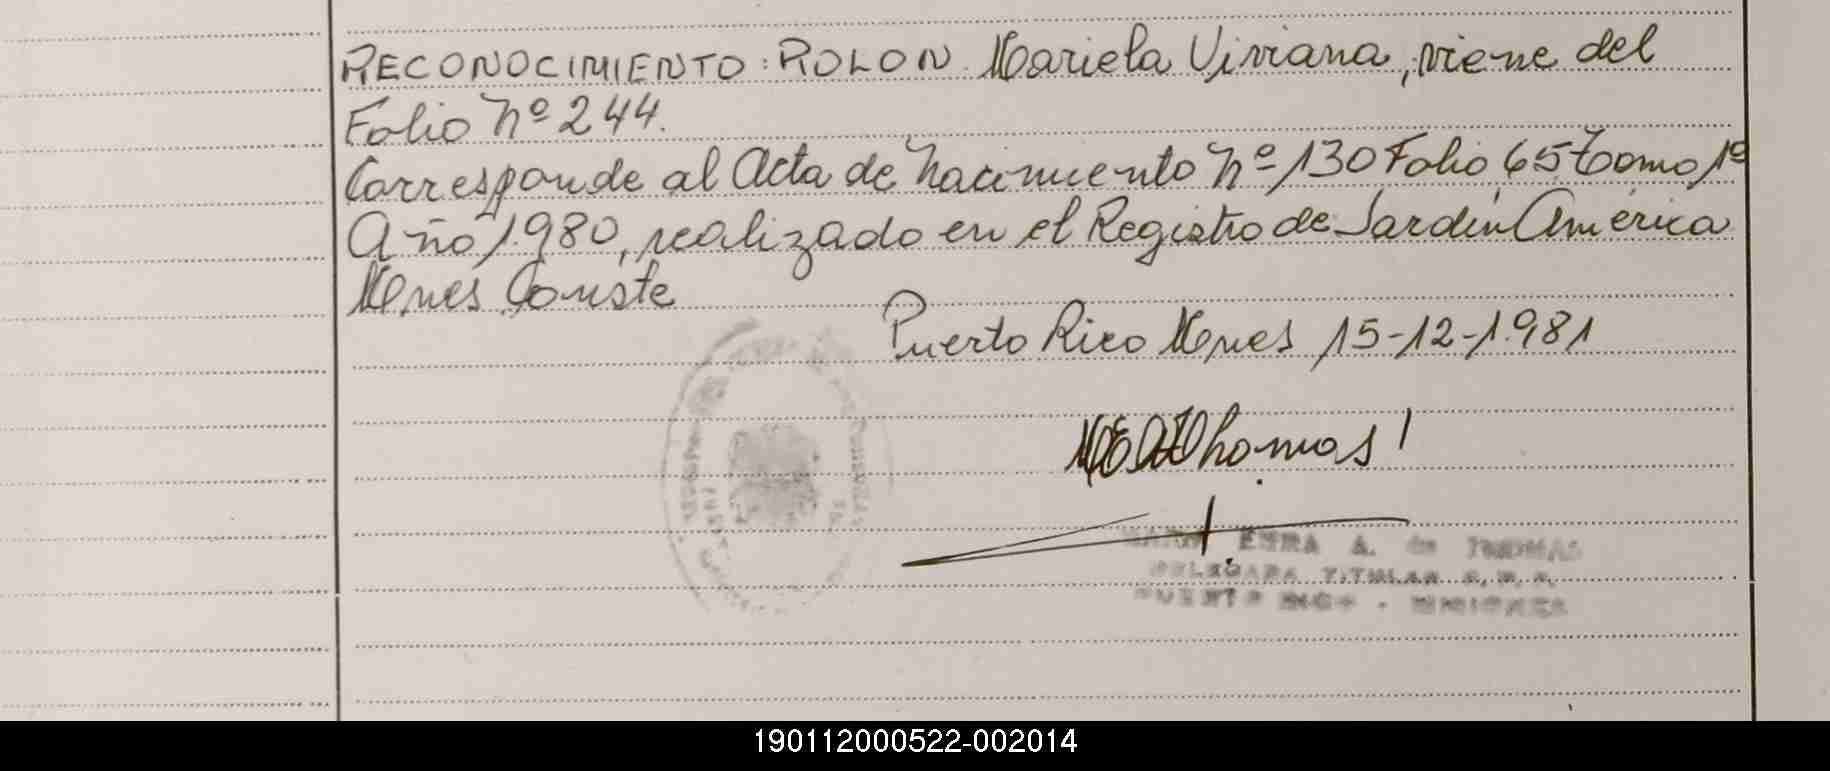 RECONOCIMIENTO: ROLON Mariela Viviana, viene del
Folio Nº 244.
Corresponde al Acta de Nacimiento Nº 130 Folio 65 Tomo 1º
Año 1.980, realizado en el Registro de Jardín América
Mnes. Conste
Puerto Rico Mnes 15-12-1.981
Thomas
EMMA A. de THOMAS
DELEGADA TITULAR
PUERTO RICO - MISIONES
190112000522-002014